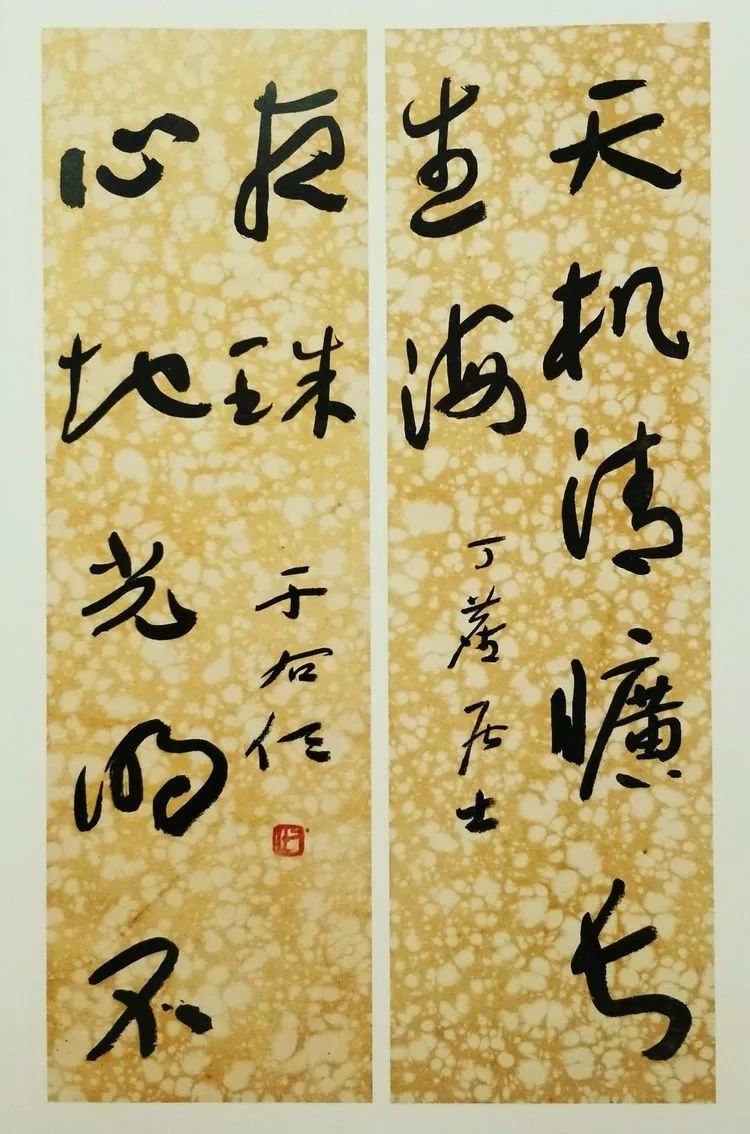 天机清曠长
生海
居士
心地光明不
夜珠
于右任